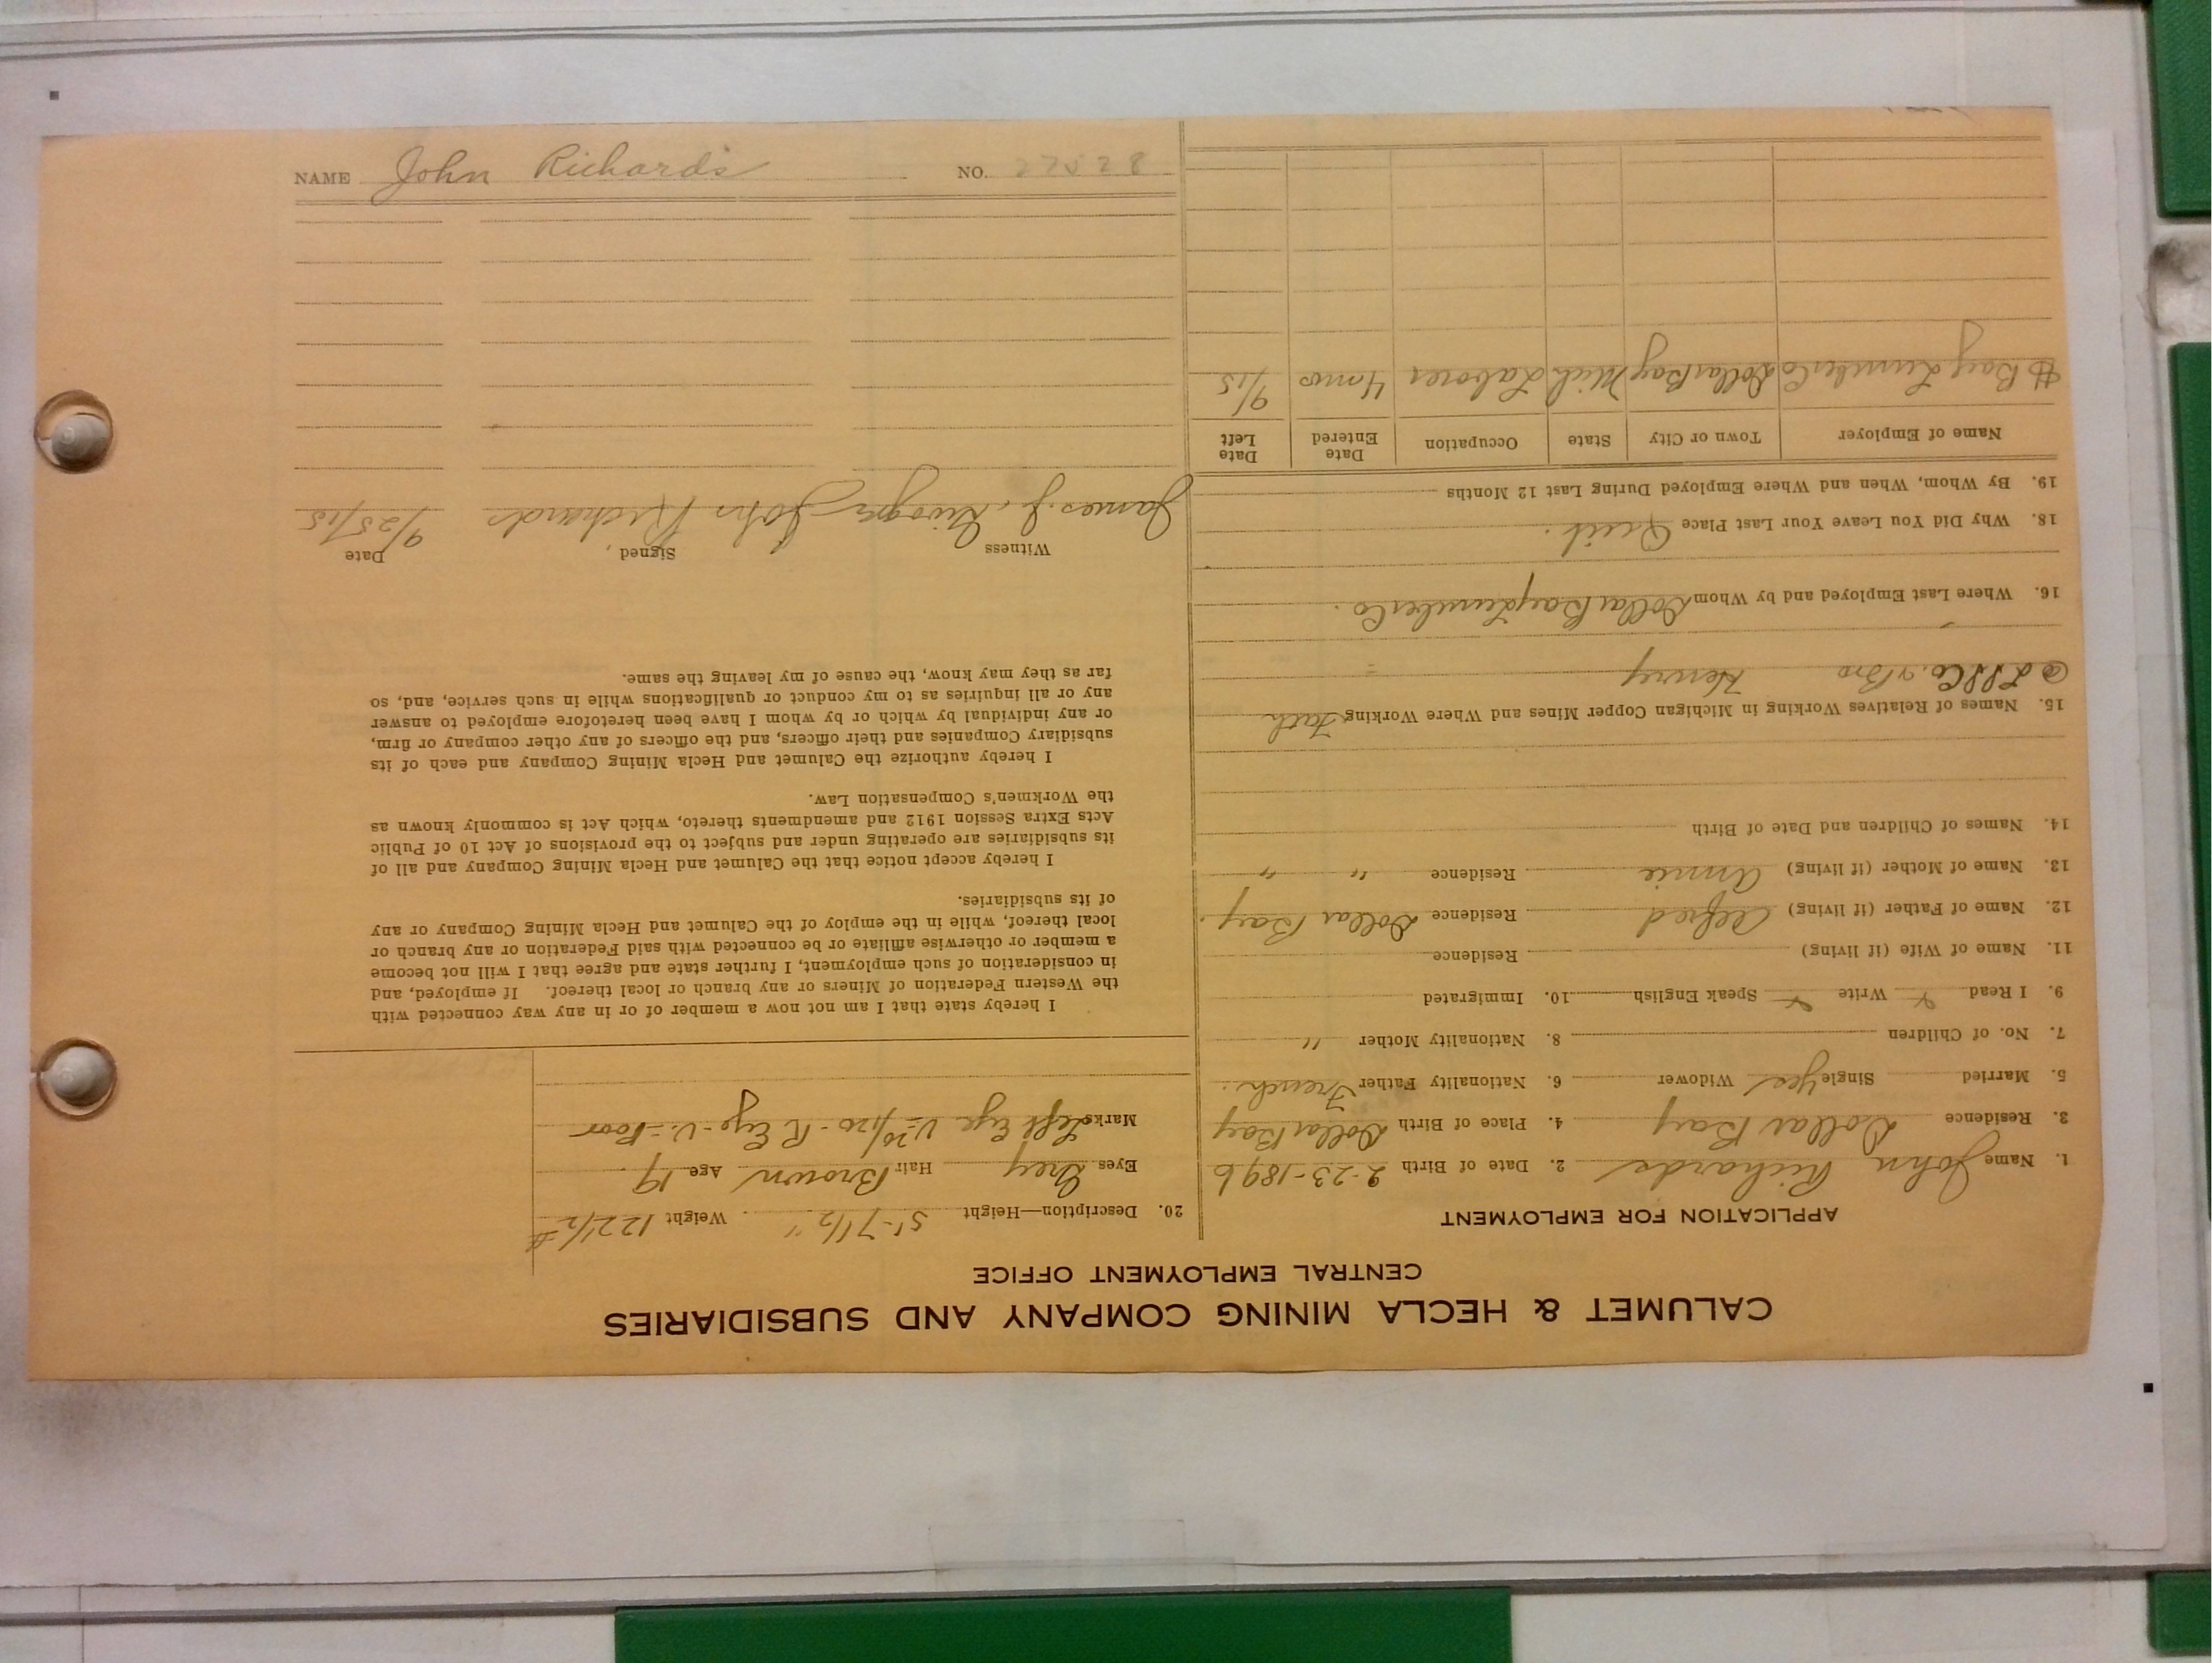 CALUMET & HECLA MINING COMPANY AND SUBSIDIARIES
CENTRAL EMPLOYMENT OFFICE
APPLICATION FOR EMPLOYMENT
1. Name John Richards 2. Date of Birth 2-23-1896
3. Residence Dollar Bay 4. Place of Birth Dollar Bay
5. Married Single Yes Widower 6. Nationality Father French
7. No. of Children 8. Nationality Mother "
9. I Read Y Write Y Speak English 10. Immigrated
11. Name of Wife (if living) Residence
12. Name of Father (if living) Alfred Residence Dollar Bay.
13. Name of Mother (if living) Annie Residence " "
14. Names of Children and Date of Birth
15. Names of Relatives Working in Michigan Copper Mines and Where Working Fath
@ Co. & Bro Henry
16. Where Last Employed and by Whom Dollar Bay Lumber Co.
18. Why Did You Leave Your Last Place Quit.
19. By Whom, When and Where Employed During Last 12 Months
Name of Employer Town or City State Occupation Date Entered Date Left
Bay Lumber Co Dollar Bay Mich Laborer 4 mos 9/15
20. Description—Height 5'-7 1/2" Weight 122 1/2 #
Eyes Grey Hair Brown Age 19.
Marks Left Eye V=20/120 - R Eye - V.= Poor
I hereby state that I am not now a member of or in any way connected with
the Western Federation of Miners or any branch or local thereof. If employed, and
in consideration of such employment, I further state and agree that I will not become
a member or otherwise affiliate or be connected with said Federation or any branch or
local thereof, while in the employ of the Calumet and Hecla Mining Company or any
of its subsidiaries.
I hereby accept notice that the Calumet and Hecla Mining Company and all of
its subsidiaries are operating under and subject to the provisions of Act 10 of Public
Acts Extra Session 1912 and amendments thereto, which Act is commonly known as
the Workmen's Compensation Law.
I hereby authorize the Calumet and Hecla Mining Company and each of its
subsidiary Companies and their officers, and the officers of any other company or firm,
or any individual by which or by whom I have been heretofore employed to answer
any or all inquiries as to my conduct or qualifications while in such service, and, so
far as they may know, the cause of my leaving the same.
Witness Signed, Date
James J. John Richards 9/25/15
NAME John Richards NO. 27528